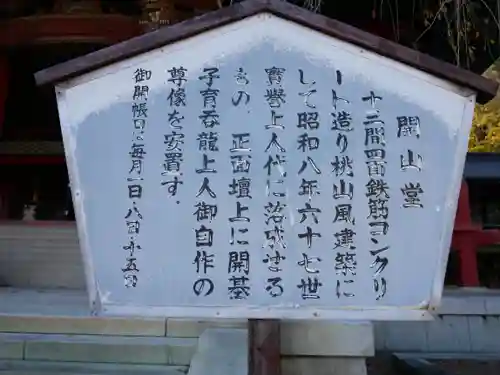 開山堂
十二間四面鉄筋コンクリ
ート造り桃山風建築に
して昭和八年六十七世
實譽上人代に落成せる
もの．正面壇上に開基
子育呑龍上人御自作の
尊像を安置す．
御開帳日毎月一日．八日．十五日